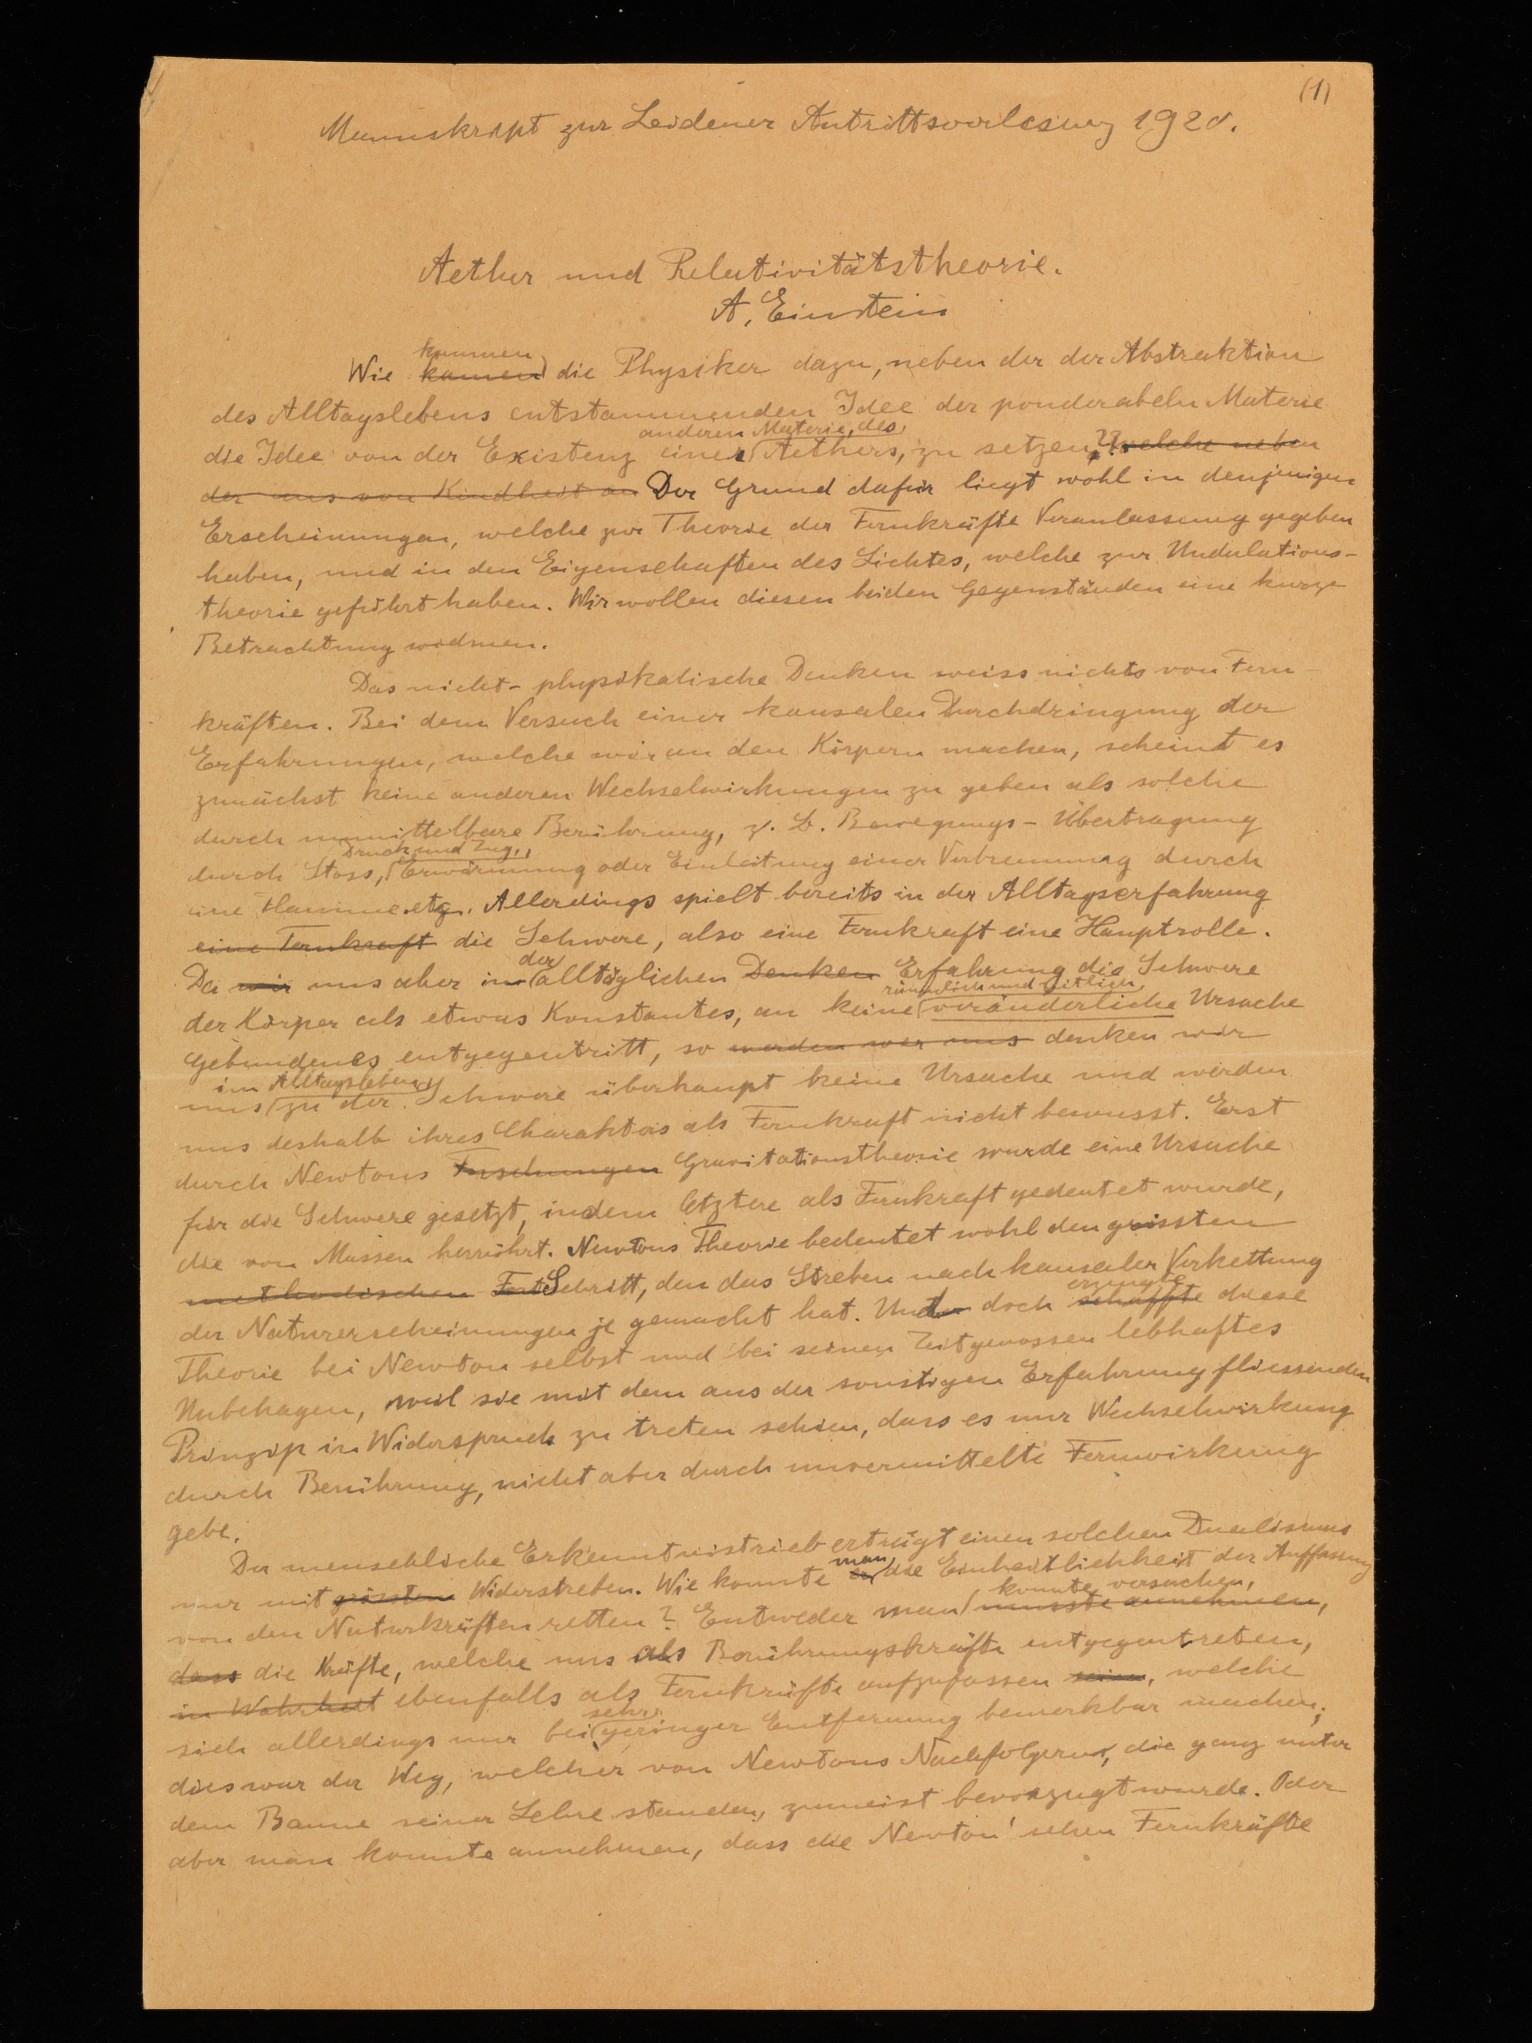 (1)
Manuskript zur Leidener Antrittsvorlesung 1920.
Aether und Relativitätstheorie.
A. Einstein
kommen
Wie kamen die Physiker dazu, neben der der Abstraktion
des Alltagslebens entstammenden Idee der ponderabeln Materie
anderen Materie, des
die Idee von der Existenz einer Aethers, zu setzen? welche neben
der uns von Kindheit an Der Grund dafür liegt wohl in denjenigen
Erscheinungen, welche zur Theorie der Fernkräfte Veranlassung gegeben
haben, und in den Eigenschaften des Lichtes, welche zur Undulations-
theorie geführt haben. Wir wollen diesen beiden Gegenständen eine kurze
Betrachtung widmen.
Das nicht-physikalische Denken weiss nichts von Fern-
kräften. Bei dem Versuch einer kausalen Durchdringung der
Erfahrungen, welche wir an den Körpern machen, scheint es
zunächst keine anderen Wechselwirkungen zu geben als solche
durch unmittelbare Berührung, z. B. Bewegungs-Übertragung
Druck und Zug,
durch Stoss, Erwärmung oder Einleitung einer Verbrennung durch
eine Flamme etc. Allerdings spielt bereits in der Alltagserfahrung
eine Fernkraft die Schwere, also eine Fernkraft eine Hauptrolle.
der
Da wir uns aber in alltäglichen Denken Erfahrung die Schwere
räumlich und zeitlich
der Körper als etwas Konstantes, an keine veränderliche Ursache
Gebundenes entgegentritt, so werden wir uns denken wir
im Alltagsleben
uns zu der Schwere überhaupt keine Ursache und werden
uns deshalb ihres Charakters als Fernkraft nicht bewusst. Erst
durch Newtons Forschungen Gravitationstheorie wurde eine Ursache
für die Schwere gesetzt, indem letztere als Fernkraft gedeutet wurde,
die von Massen herrührt. Newtons Theorie bedeutet wohl den grössten
methodischen Fort Schritt, den das Streben nach kausaler Verkettung
erzeugte
der Naturerscheinungen je gemacht hat. Und doch schaffte diese
Theorie bei Newton selbst und bei seinen Zeitgenossen lebhaftes
Unbehagen, weil sie mit dem aus der sonstigen Erfahrung fliessenden
Prinzip in Widerspruch zu treten schien, dass es nur Wechselwirkung
durch Berührung, nicht aber durch unvermittelte Fernwirkung
gebe.
Der menschliche Erkenntnistrieb erträgt einen solchen Dualismus
man
nur mit grösstem Widerstreben. Wie konnte er die Einheitlichkeit der Auffassung
konnte versuchen,
von den Naturkräften retten? Entweder man musste annehmen,
dass die Kräfte, welche uns als Berührungskräfte entgegentreten,
in Wahrheit ebenfalls als Fernkräfte aufzufassen seien, welche
sehr
sich allerdings nur bei geringer Entfernung bemerkbar machen;
dies war der Weg, welcher von Newtons Nachfolgern, die ganz unter
dem Banne seiner Lehre standen, zumeist bevorzugt wurde. Oder
aber man konnte annehmen, dass die Newton'schen Fernkräfte